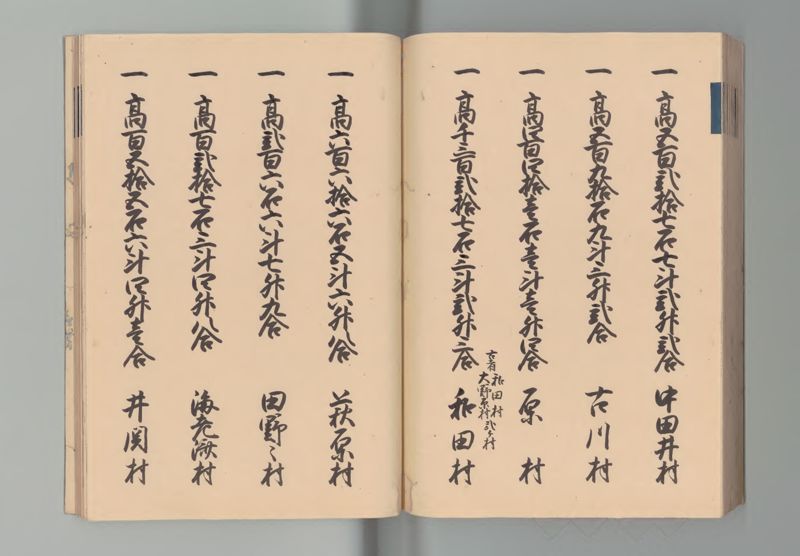 一 高五百弐拾七石七斗弐升弐合 中田井村
一 高五百九拾石九斗三升弐合 古川村
一 高四百四拾壱石壱斗壱升四合 原 村
古者 和田村
大野原村 弐ヶ村
一 高千三百弐拾七石三斗弐升三合 和田村
一 高六百六拾六石五斗六升八合 萩原村
一 高弐百六石六斗七升九合 田野々村
一 高百弐拾七石三斗四升八合 海老済村
一 高百五拾五石六斗四升壱合 井関村